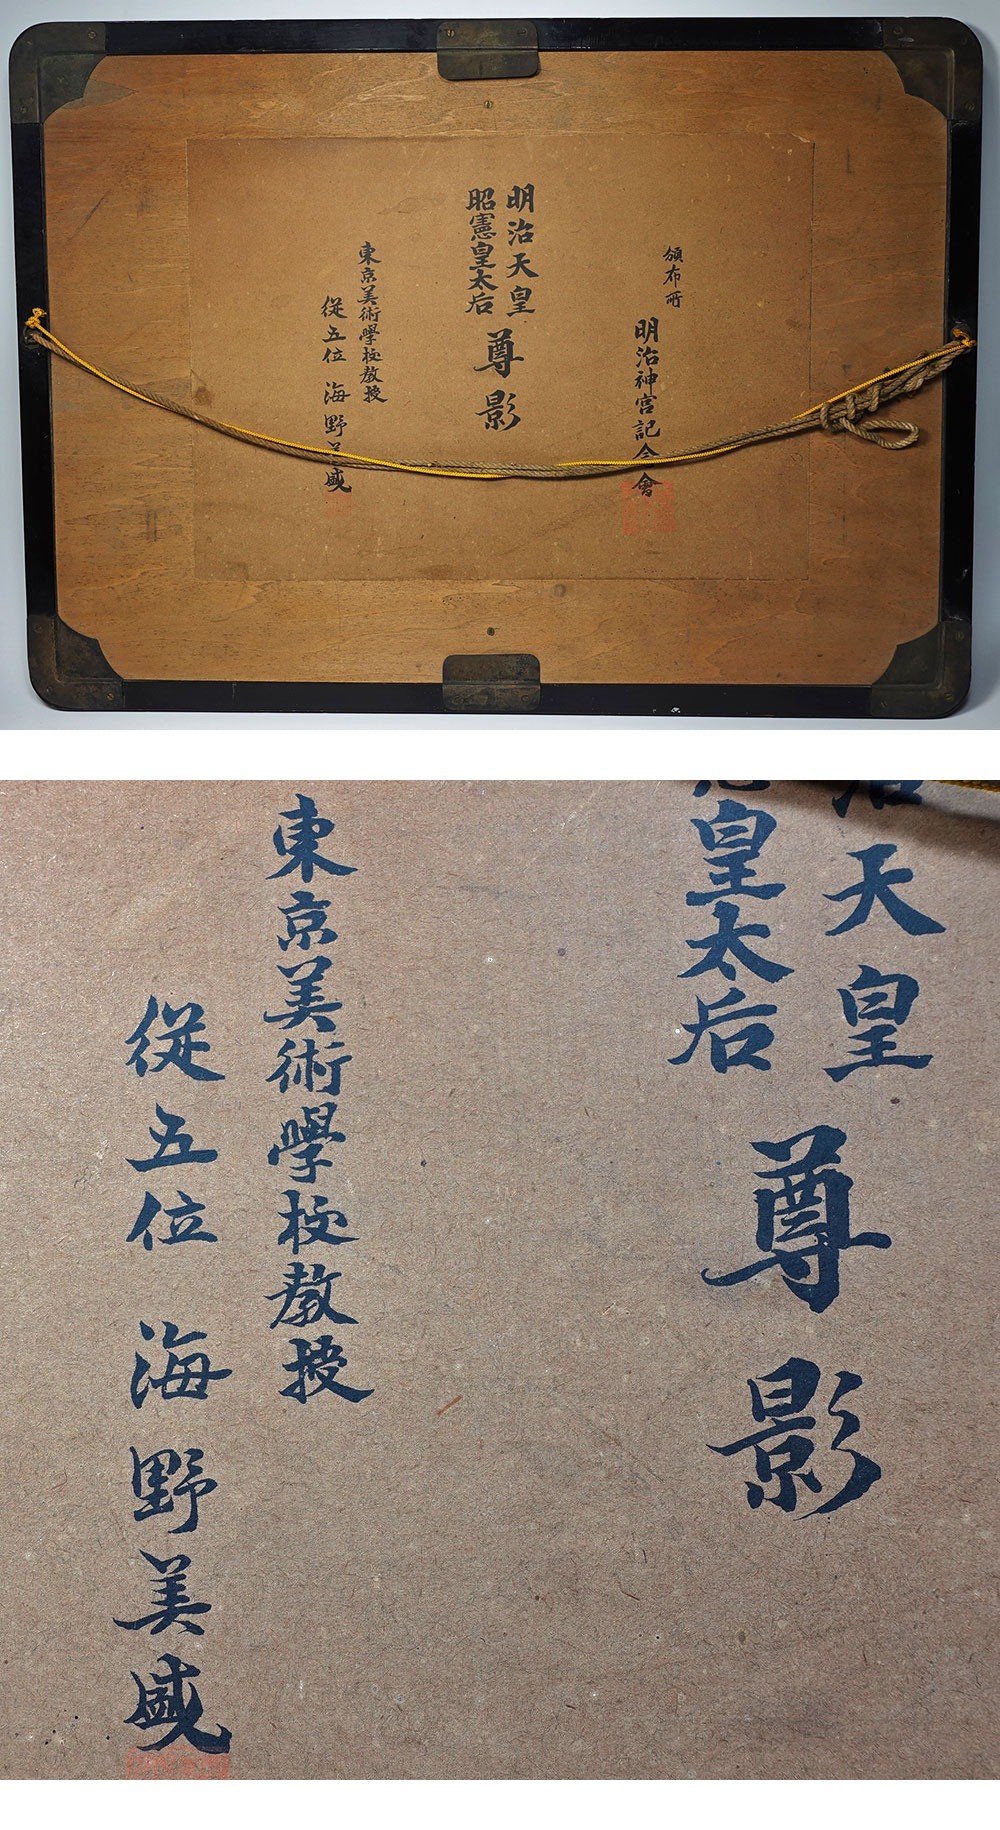 頒布所
明治神宮記念會
明治天皇
昭憲皇太后
尊影
東京美術學校教授
從五位 海野美盛
治天皇
皇太后
尊影
東京美術學校教授
從五位 海野美盛